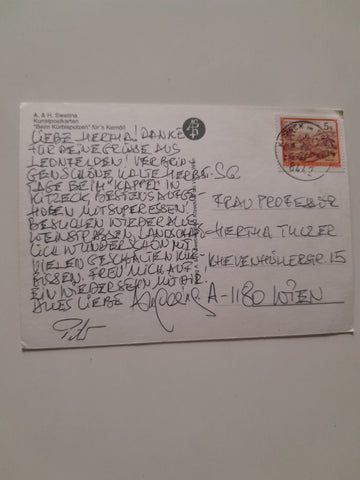 A. & H. Swatina
Kunstpostkarten
"Beim Kürbisputzen" für's Kernöl!
LIEBE HERTHA! DANKE
FÜR DEINE GRÜSSE AUS
LEONFELDEN! VERBRIN-
GEN SCHÖNE KALTE HERBST-
TAGE BEIM "KAPPEL" IN
KITZECK, BESTENS AUFGE-
HOBEN MIT SUPERESSEN!
BESUCHEN WIEDER ALLE
WEINSTRASSEN LANDSCHAFT-
LICH WUNDERSCHÖN MIT
VIELEN GESCHALTEN
BISSEN. FREU MICH AUF
EIN WIEDERSEHN MIT DIR!
ALLES LIEBE
Peter
5 S
KITZECK IM
8442
FRAU PROFESSOR
HERTHA
KHEVENHÜLLERSTR. 15
A-1180 WIEN